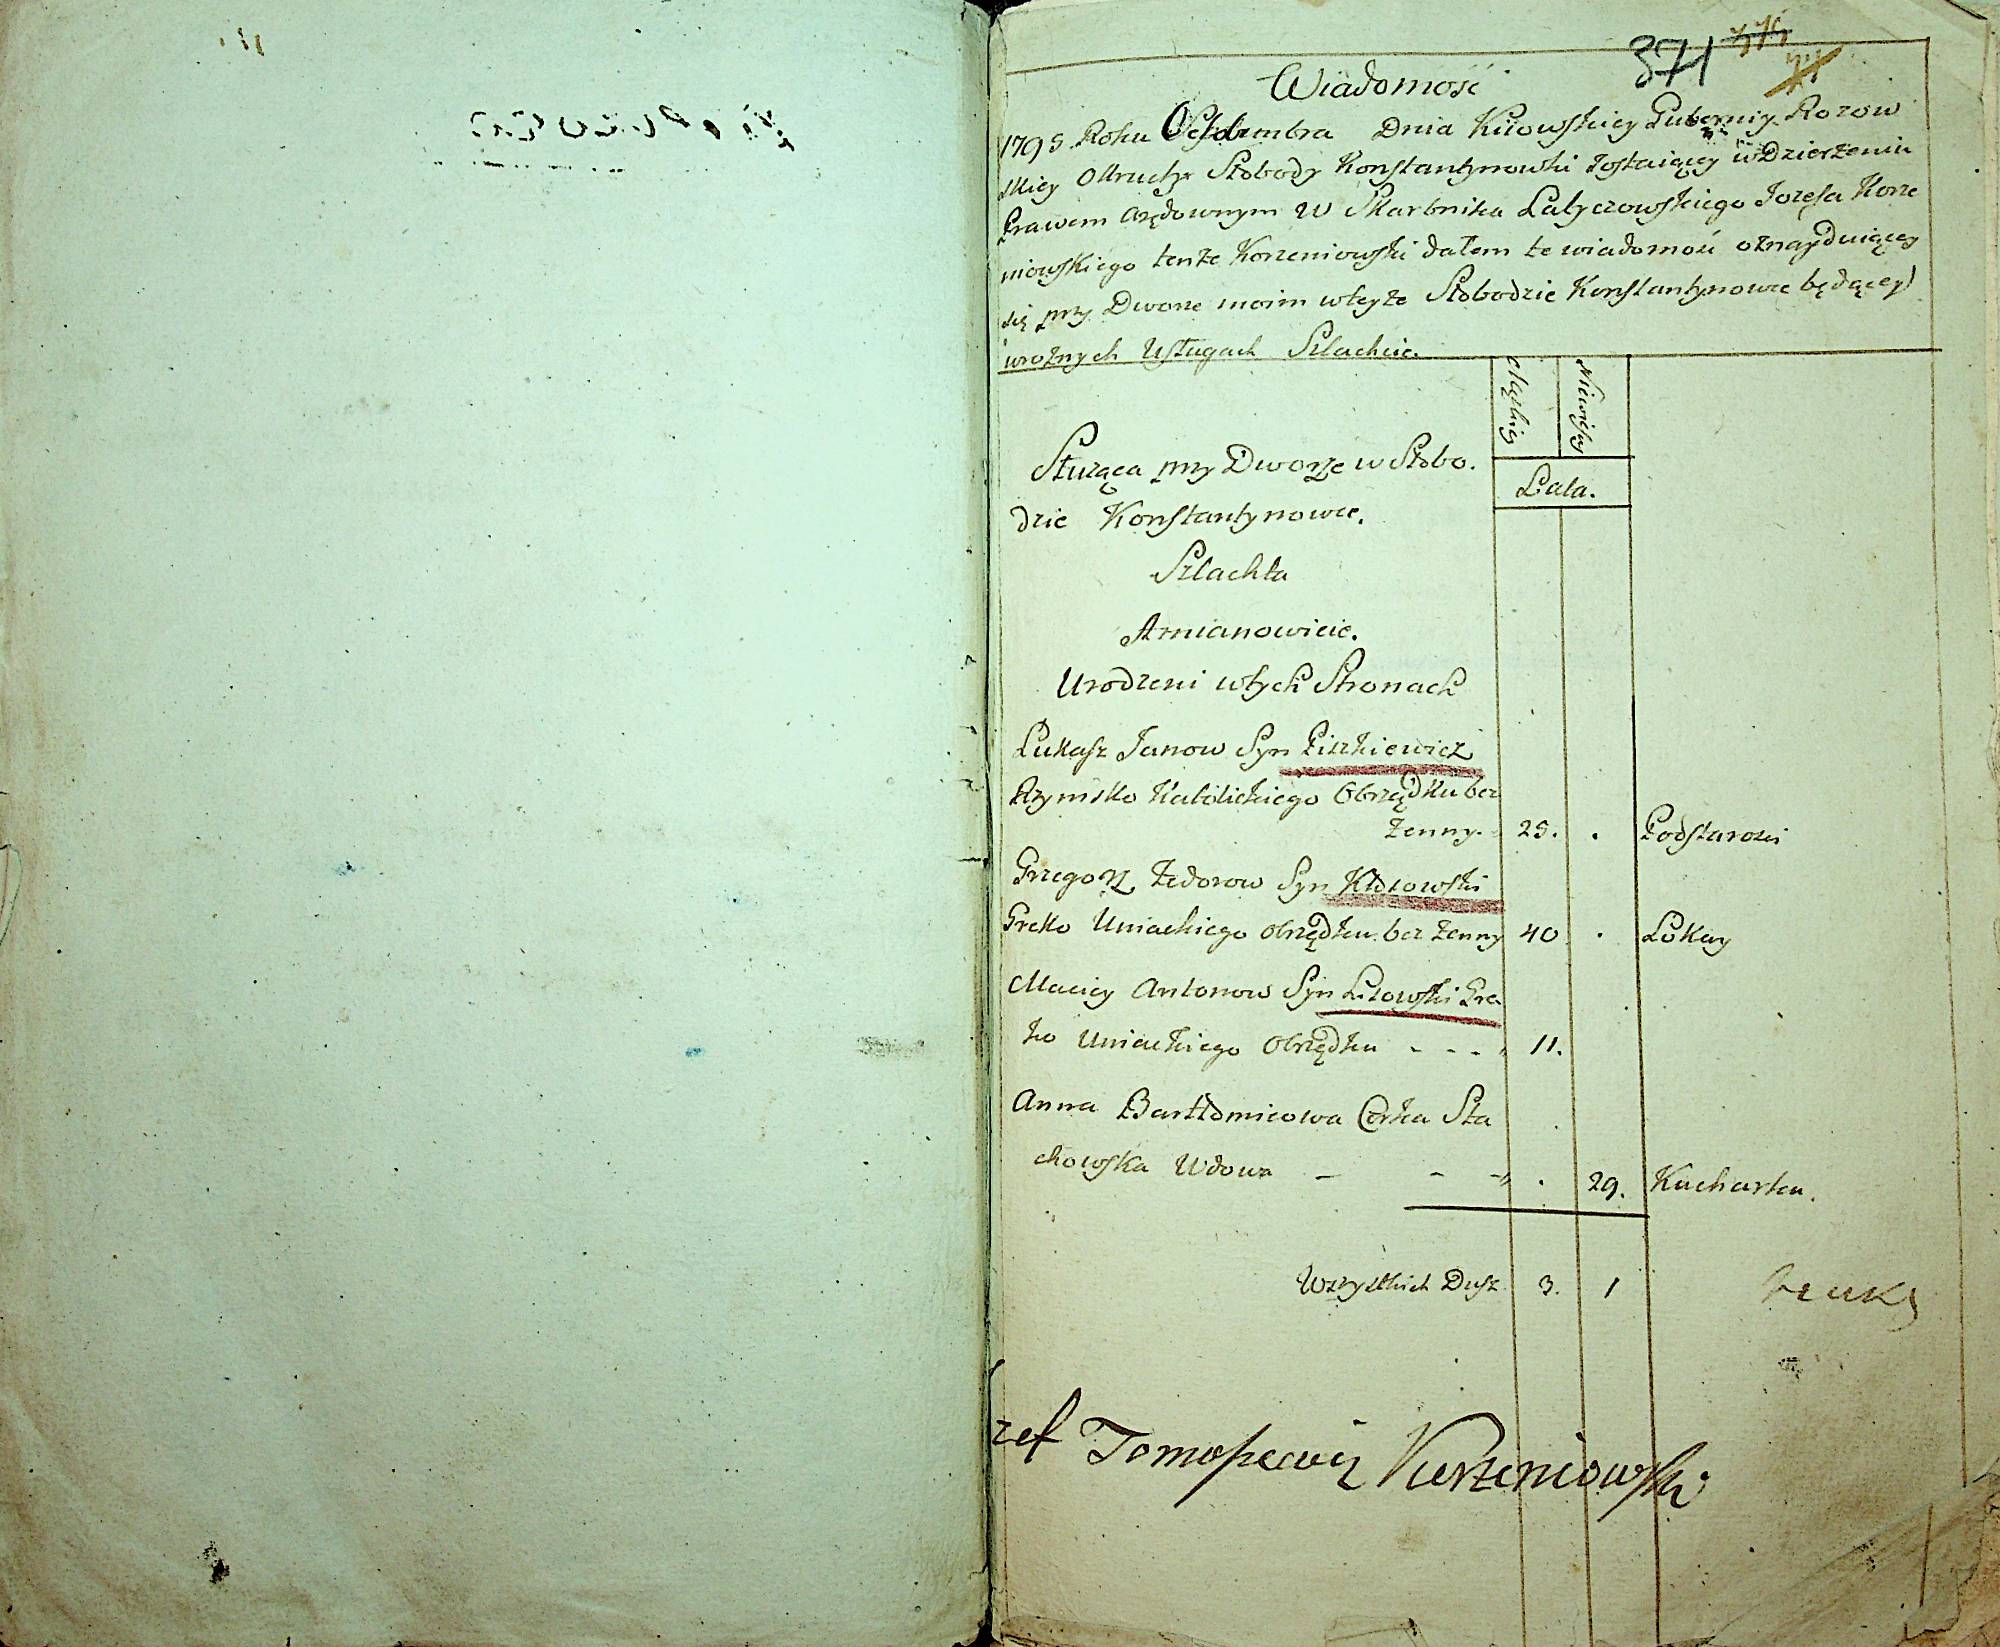 371
Wiadomość
1795 Roku Octobra Dnia Kiiowskiey Gubernij Rozow
skiey Okrucha Słobody Konstantynowki zostaiącey w Dzierżeniu
Prawem Arędownym W Skarbnika Latyczowskiego Jozefa Korze
niowskiego tenże Korzeniowski dałem tę wiadomość oznayduiącey
się przy Dworze moim wteyże Słobodzie Konstantynowce będącey
wrożnych Usługach Szlachcie.
Męzkiey Niewiesciey
Służąca przy Dworze w Słobo.
dzie Konstantynowce.
Lata.
Szlachta
Mianowicie.
Urodzeni wtych Stronach
Lukasz Janow Syn Piszkiewicz
Rzymsko Katolickiego Obrządku bez
Żenny. 25. . Podstarosci
Grzegorz Fedorow Syn Kłosowski
Greko Uniackiego obrządku bez Żenny 40 . Lokay
Maciey Antonow Syn Lisowski Gre
ko Uniackiego Obrządku - - - 11.
Anna Bartłomieiowa Corka Sta
chowska Wdowa - - - . 29. Kucharka.
Wszystkich Dusz 3. 1
zef Tomaszewicz Korzeniowski